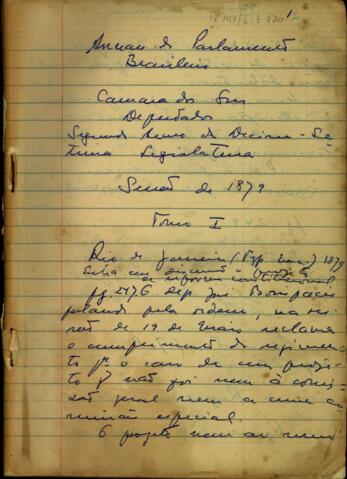 1
Annaes do Parlamento
Brasileiro
Camara dos Srs
Deputados
Segundo Anno da Decima-Sé
tima Legislatura
Sessão de 1879
Tomo I
Rio de Janeiro (Typ. Nac.) 1879
constitucional
pg. 247, 6 dep. José Bonifacio
falando pela ordem, na ses
são de 19 de Maio reclama
o cumprimento do regimen
to pª o caso de um proje
to q não foi nem à comis
são geral nem a uma co
missão especial.
O projeto nem ao menos